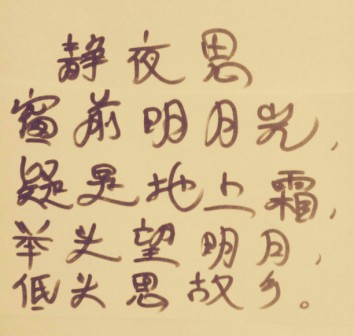 静夜思
窗前明月光，
疑是地上霜，
举头望明月，
低头思故乡。